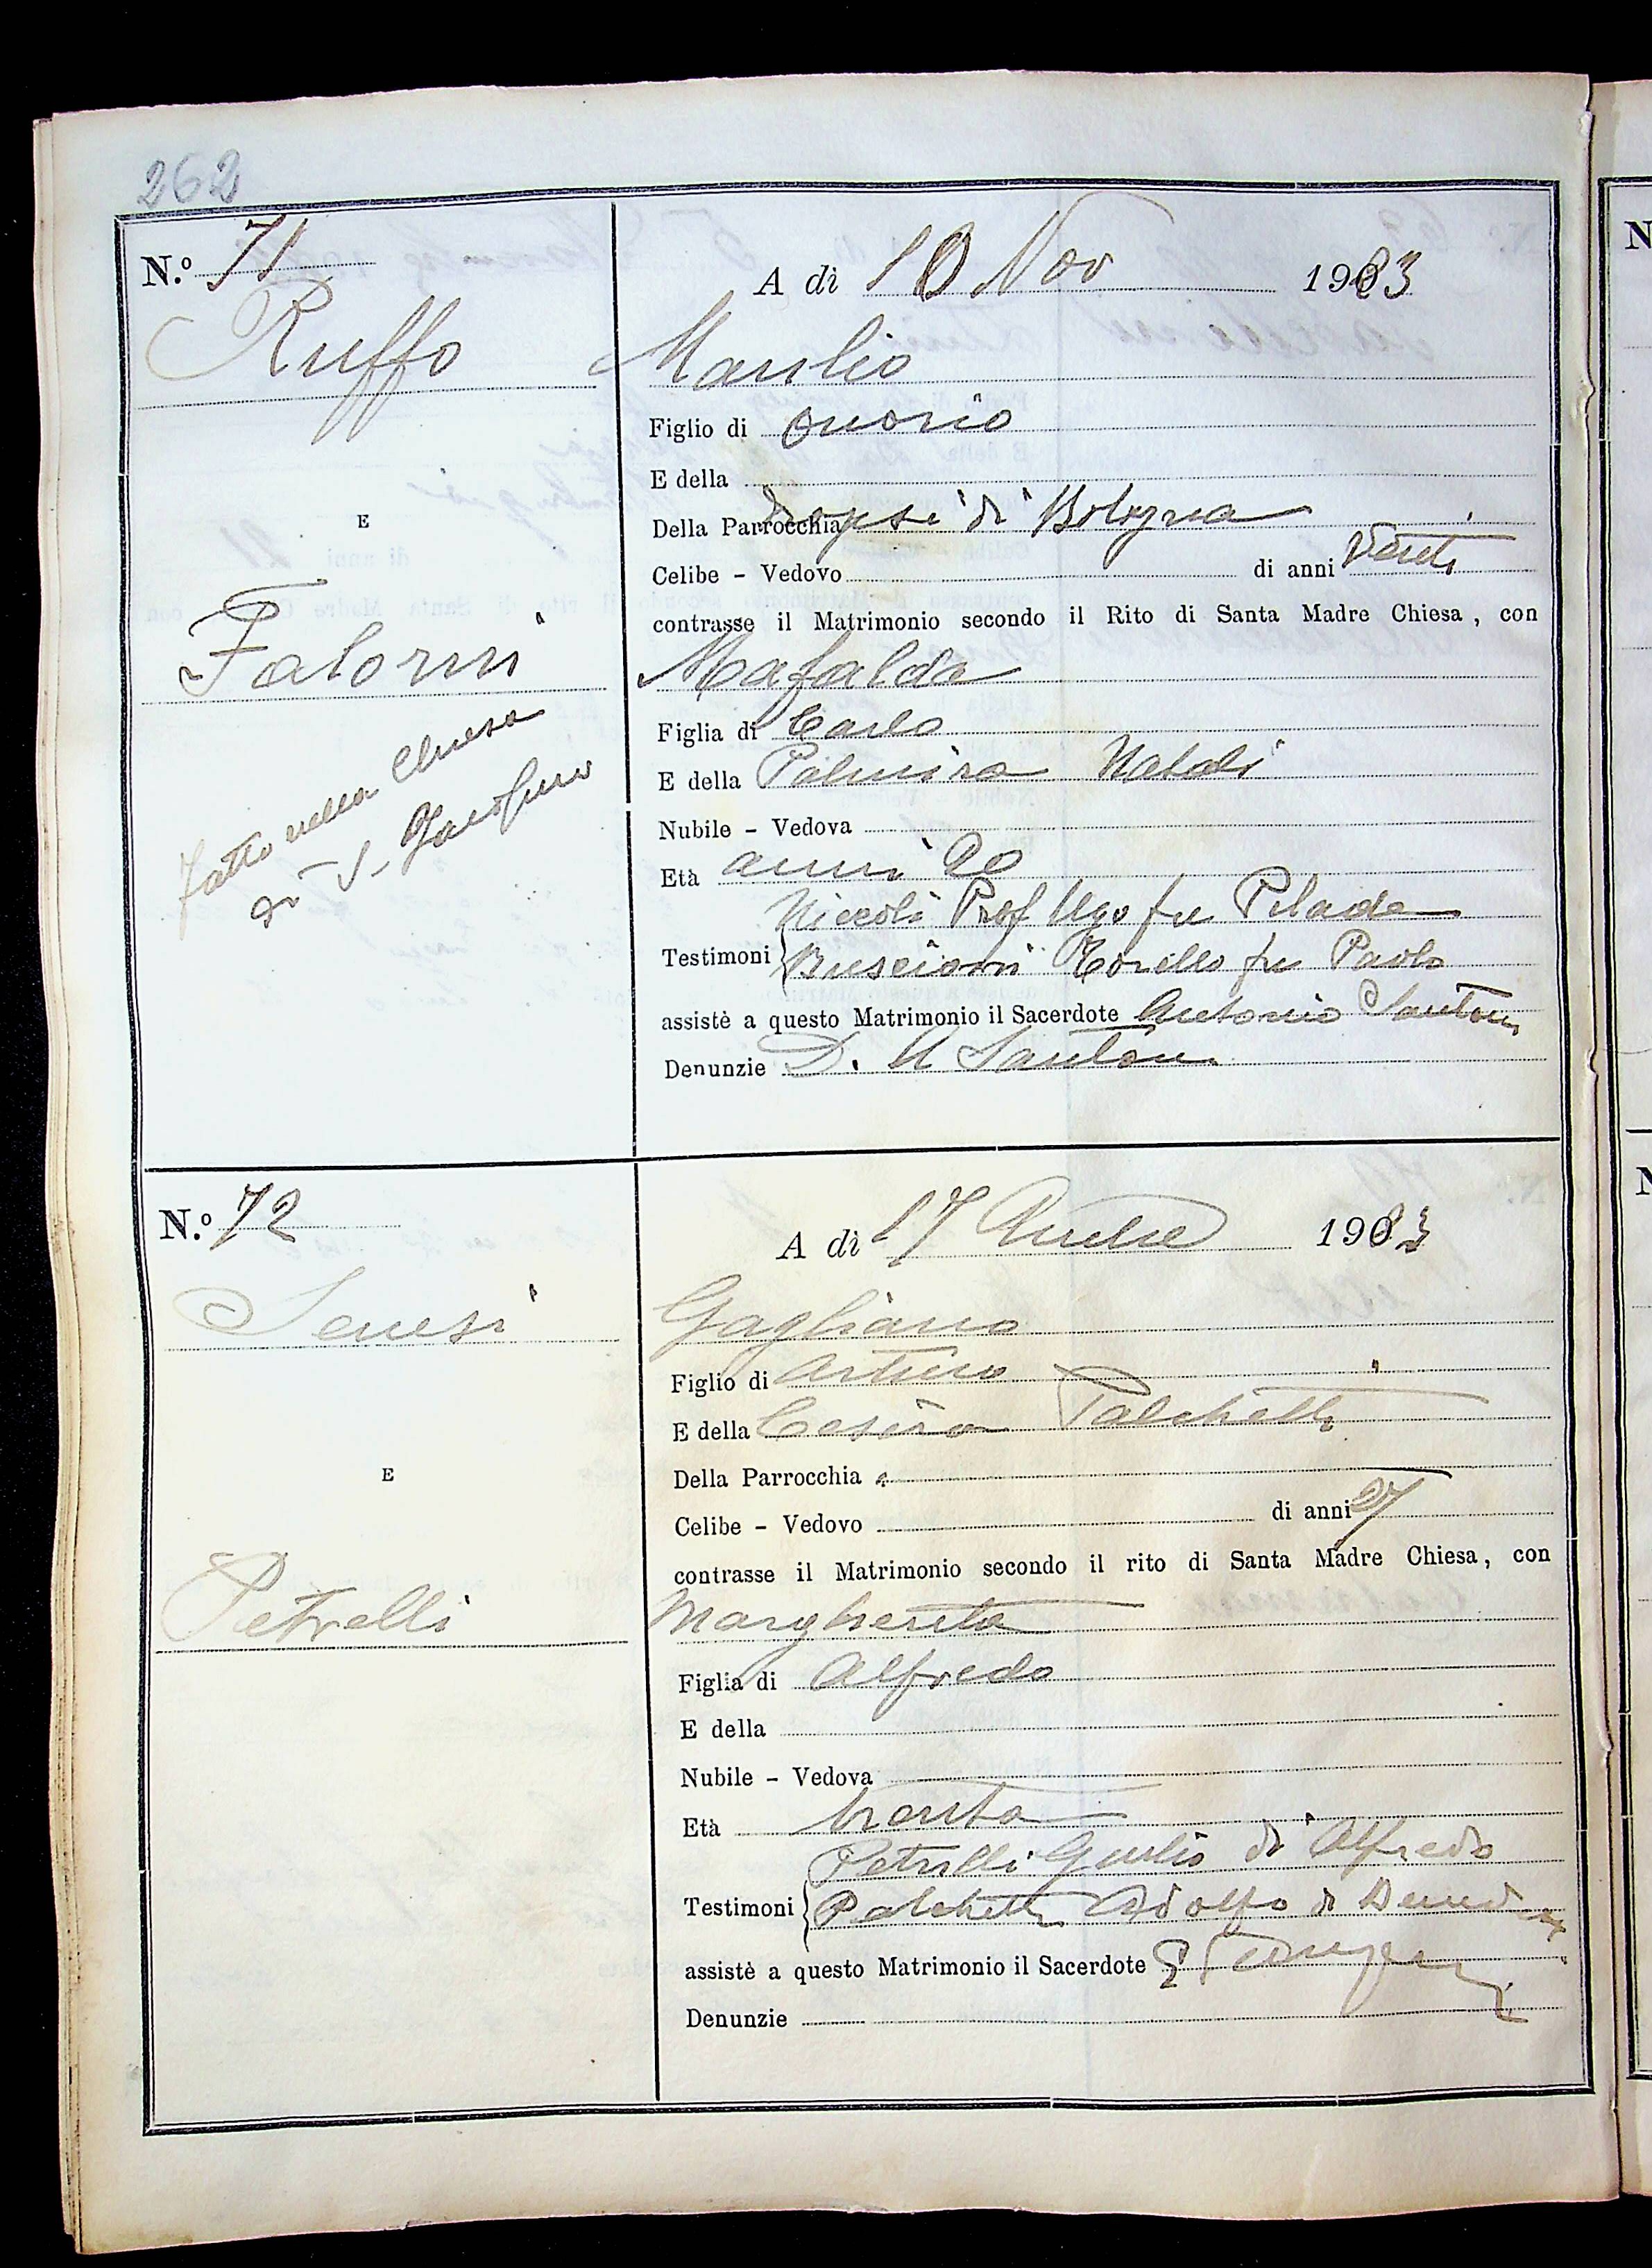 262
N.º 71
A dì 10 Nov 1923
Ruffo Manlio
Figlio di Onorio
E della
Della Parrocchia di Bologna
Celibe - Vedovo di anni Venti
E
contrasse il Matrimonio secondo il Rito di Santa Madre Chiesa, con
Falorni Mafalda
Figlia di Carlo
E della Palmira Natali
Nubile - Vedova
Fatto nella Chiesa
di S.
Età anni 20
Niccoli Prof Ugo fu Pilade
Testimoni Buscioni Torello fu Paolo
assistè a questo Matrimonio il Sacerdote Antonio Santoni
Denunzie D. A Santoni
N.º 72
A dì 17 Anche 1923
Senesi Gagliano
Figlio di Arturo
E della Cesira Palchetti
Della Parrocchia
E
Celibe - Vedovo di anni 27
contrasse il Matrimonio secondo il rito di Santa Madre Chiesa, con
Petrelli Margherita
Figlia di Alfredo
E della
Nubile - Vedova
Età trenta
Petrelli Giulio di Alfredo
Testimoni Palchetti Adolfo di
assistè a questo Matrimonio il Sacerdote
Denunzie
N
N